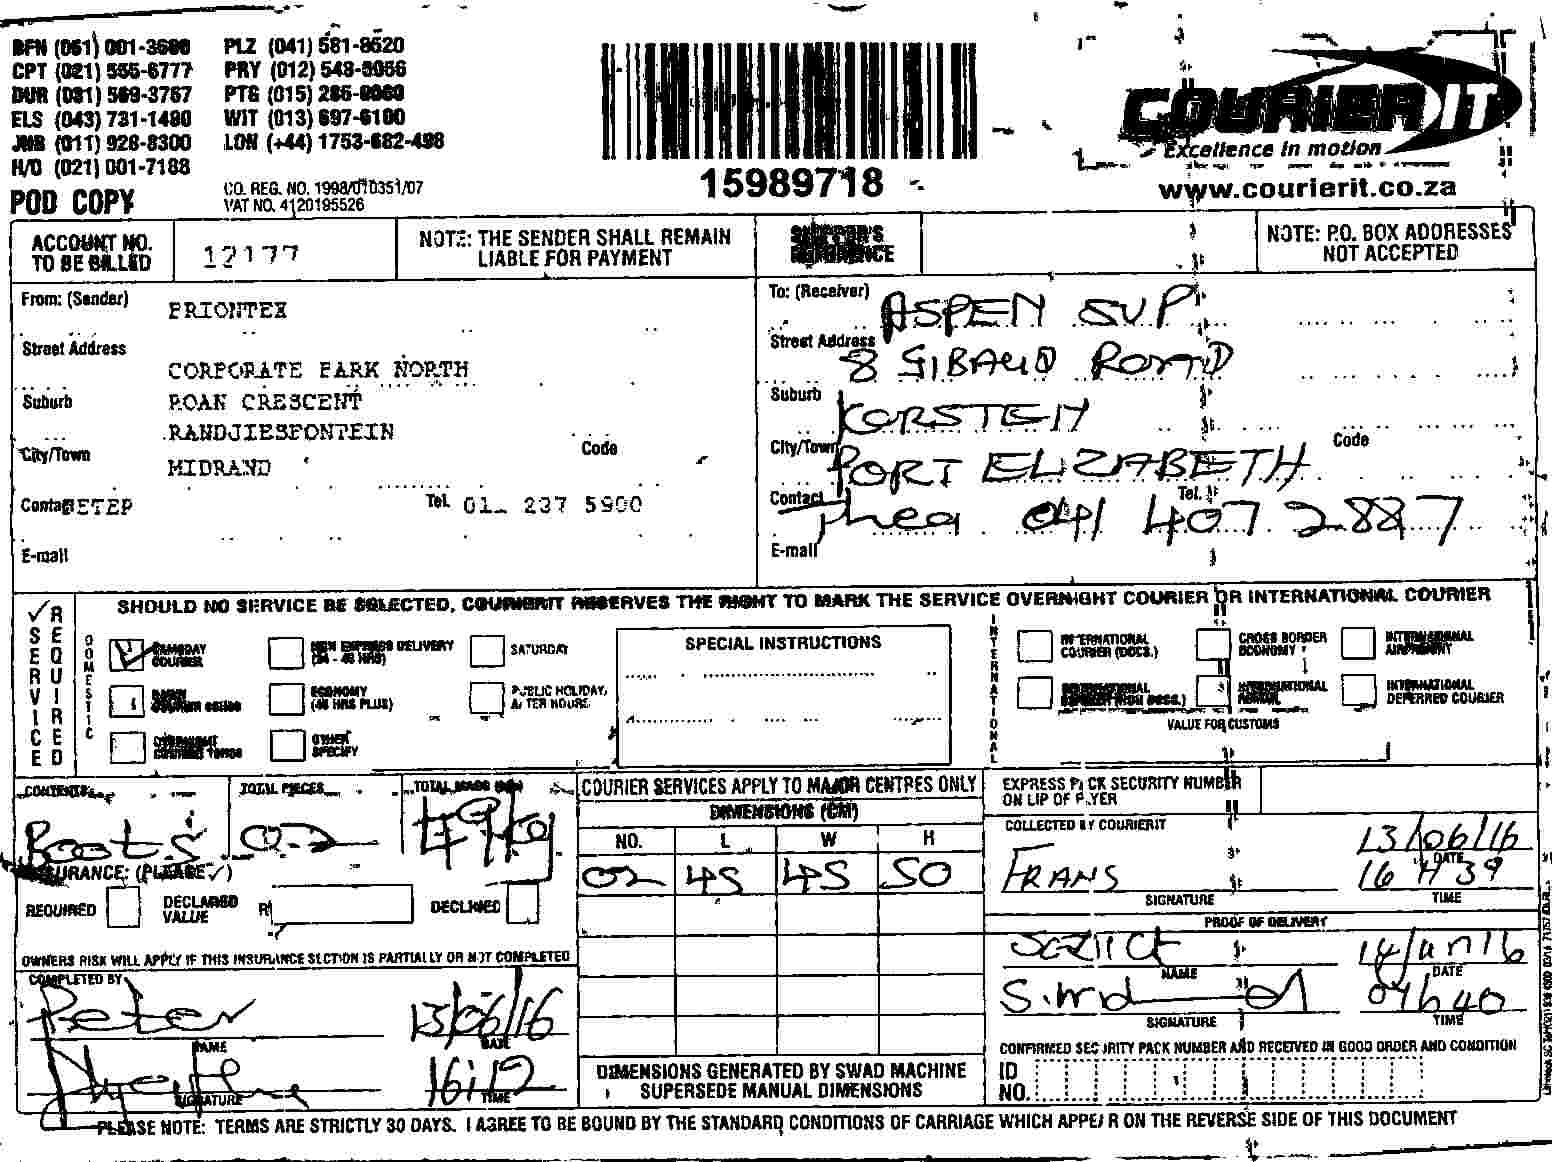 BFN (051) 001-3600 PLZ (041) 581-8520
CPT (021) 555-6777 PRY (012) 543-5056
DUR (031) 569-3767 PTG (015) 286-0060
ELS (043) 731-1480 WIT (013) 697-6100
JNB (011) 928-8300 LON (+44) 1753-682-498
H/O (021) 001-7188
POD COPY
CO. REG. NO. 1998/010351/07
VAT NO. 4120195526
15989718
COURIER IT
Excellence in motion
www.courierit.co.za
ACCOUNT NO. TO BE BILLED
12177
NOTE: THE SENDER SHALL REMAIN
LIABLE FOR PAYMENT
NOTE: P.O. BOX ADDRESSES
NOT ACCEPTED
From: (Sender) PRIONTEX
Street Address
CORPORATE PARK NORTH
Suburb ROAN CRESCENT
RANDJIESFONTEIN
City/Town MIDRAND Code
Contact PETER Tel. 237 5900
E-mail
To: (Receiver) ASPEN SVP
Street Address 8 GIBAUD ROAD
Suburb KORSTEN
City/Town PORT ELIZABETH Code
Contact Thea Tel. 041 407 2887
E-mail
SERVICE REQUIRED
SHOULD NO SERVICE BE SELECTED, COURIERIT RESERVES THE RIGHT TO MARK THE SERVICE OVERNIGHT COURIER OR INTERNATIONAL COURIER
DOMESTIC
SAMEDAY COURIER
NON EXPRESS DELIVERY (24 - 48 HRS)
SATURDAY
ECONOMY (48 HRS PLUS)
PUBLIC HOLIDAY, AFTER HOURS
OTHER SPECIFY
SPECIAL INSTRUCTIONS
INTERNATIONAL
INTERNATIONAL COURIER (DOCS.)
CROSS BORDER ECONOMY
INTERNATIONAL AIRFREIGHT
INTERNATIONAL DEFERRED COURIER
VALUE FOR CUSTOMS
CONTENTS Boots
TOTAL PIECES 02
TOTAL MASS (KG) 49kg
INSURANCE: (PLEASE ✓)
REQUIRED DECLARED VALUE R DECLINED
OWNERS RISK WILL APPLY IF THIS INSURANCE SECTION IS PARTIALLY OR NOT COMPLETED
COMPLETED BY
Peter 13/06/16
NAME DATE
16:12
SIGNATURE TIME
COURIER SERVICES APPLY TO MAJOR CENTRES ONLY
DIMENSIONS (CM)
NO. L W H
02 45 45 50
DIMENSIONS GENERATED BY SWAD MACHINE
SUPERSEDE MANUAL DIMENSIONS
EXPRESS PACK SECURITY NUMBER
ON LIP OF FLYER
COLLECTED BY COURIERIT
13/06/16
DATE
FRANS 16 H 39
SIGNATURE TIME
PROOF OF DELIVERY
NAME DATE
SIGNATURE TIME
CONFIRMED SECURITY PACK NUMBER AND RECEIVED IN GOOD ORDER AND CONDITION
ID NO.
PLEASE NOTE: TERMS ARE STRICTLY 30 DAYS. I AGREE TO BE BOUND BY THE STANDARD CONDITIONS OF CARRIAGE WHICH APPEAR ON THE REVERSE SIDE OF THIS DOCUMENT